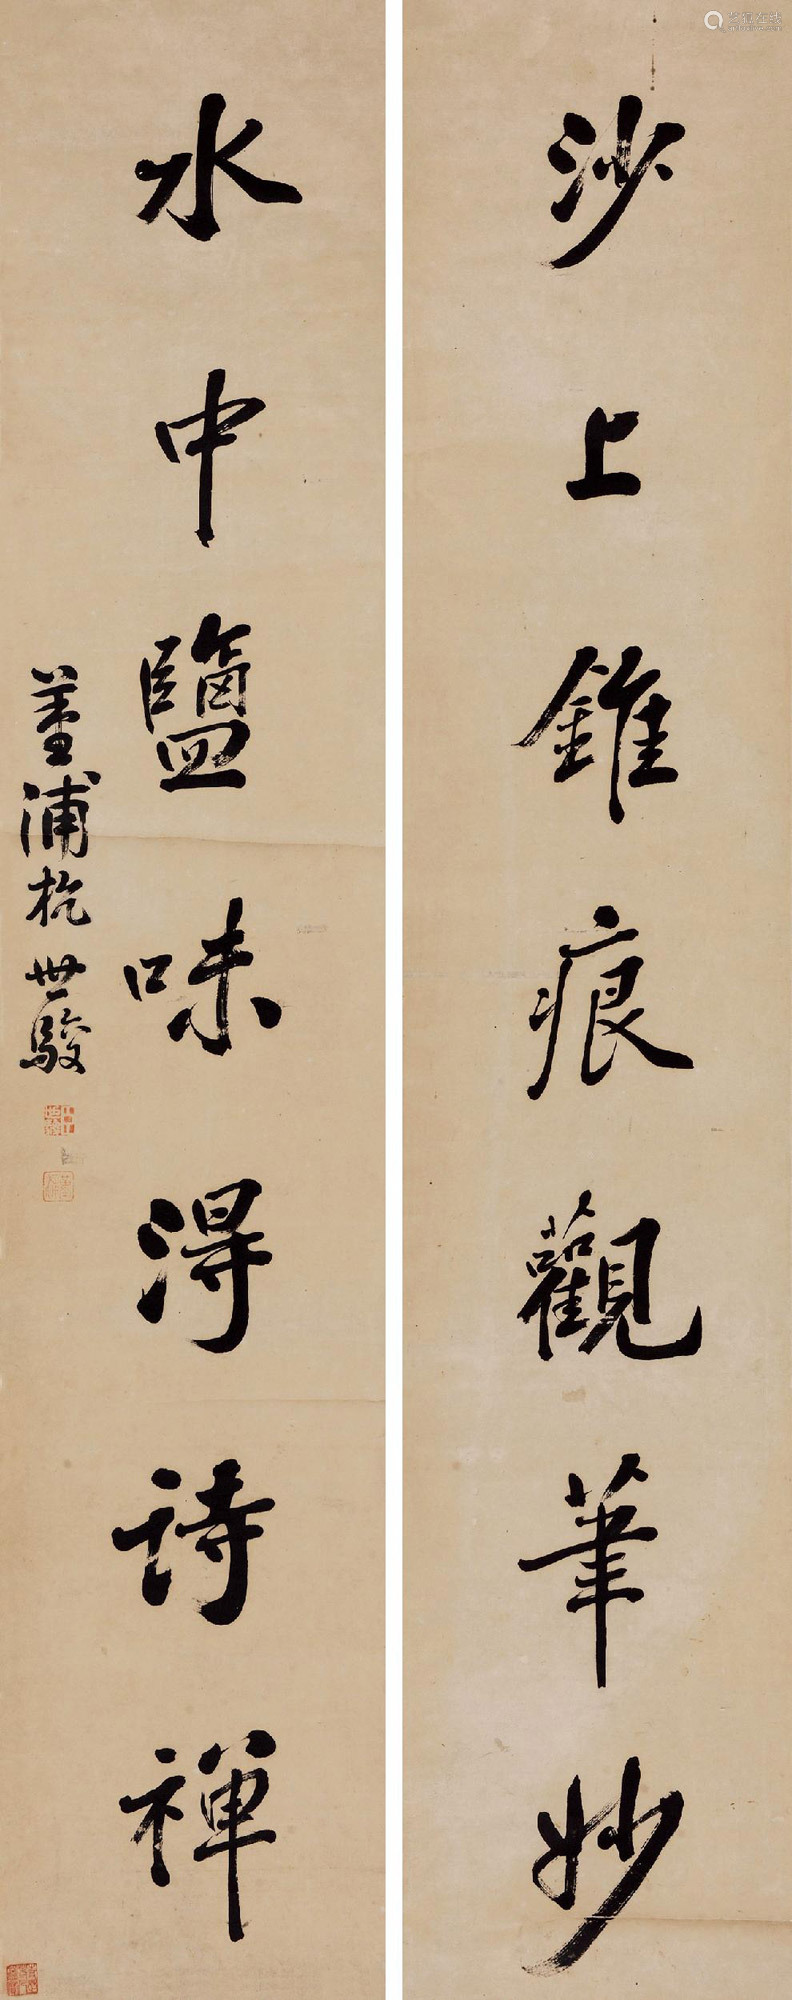 沙上錐痕觀筆妙
水中鹽味得詩禪
堇浦杭世駿